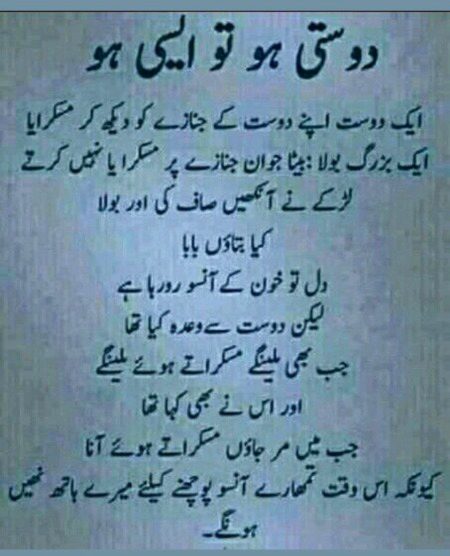 دوستی ہو تو ایسی ہو
ایک دوست اپنے دوست کے جنازے کو دیکھ کر مسکرایا
ایک بزرگ بولا :بیٹا جوان جنازے پر مسکرایا نہیں کرتے
لڑکے نے آنکھیں صاف کی اور بولا
کیا بتاؤں بابا
دل تو خون کے آنسو رورہا ہے
لیکن دوست سے وعدہ کیا تھا
جب بھی ملینگے مسکراتے ہوئے ملینگے
اور اس نے بھی کہا تھا
جب میں مر جاؤں مسکراتے ہوئے آنا
کیونکہ اس وقت تمھارے آنسو پوچھنے کیلئے میرے ہاتھ نھیں
ہونگے۔